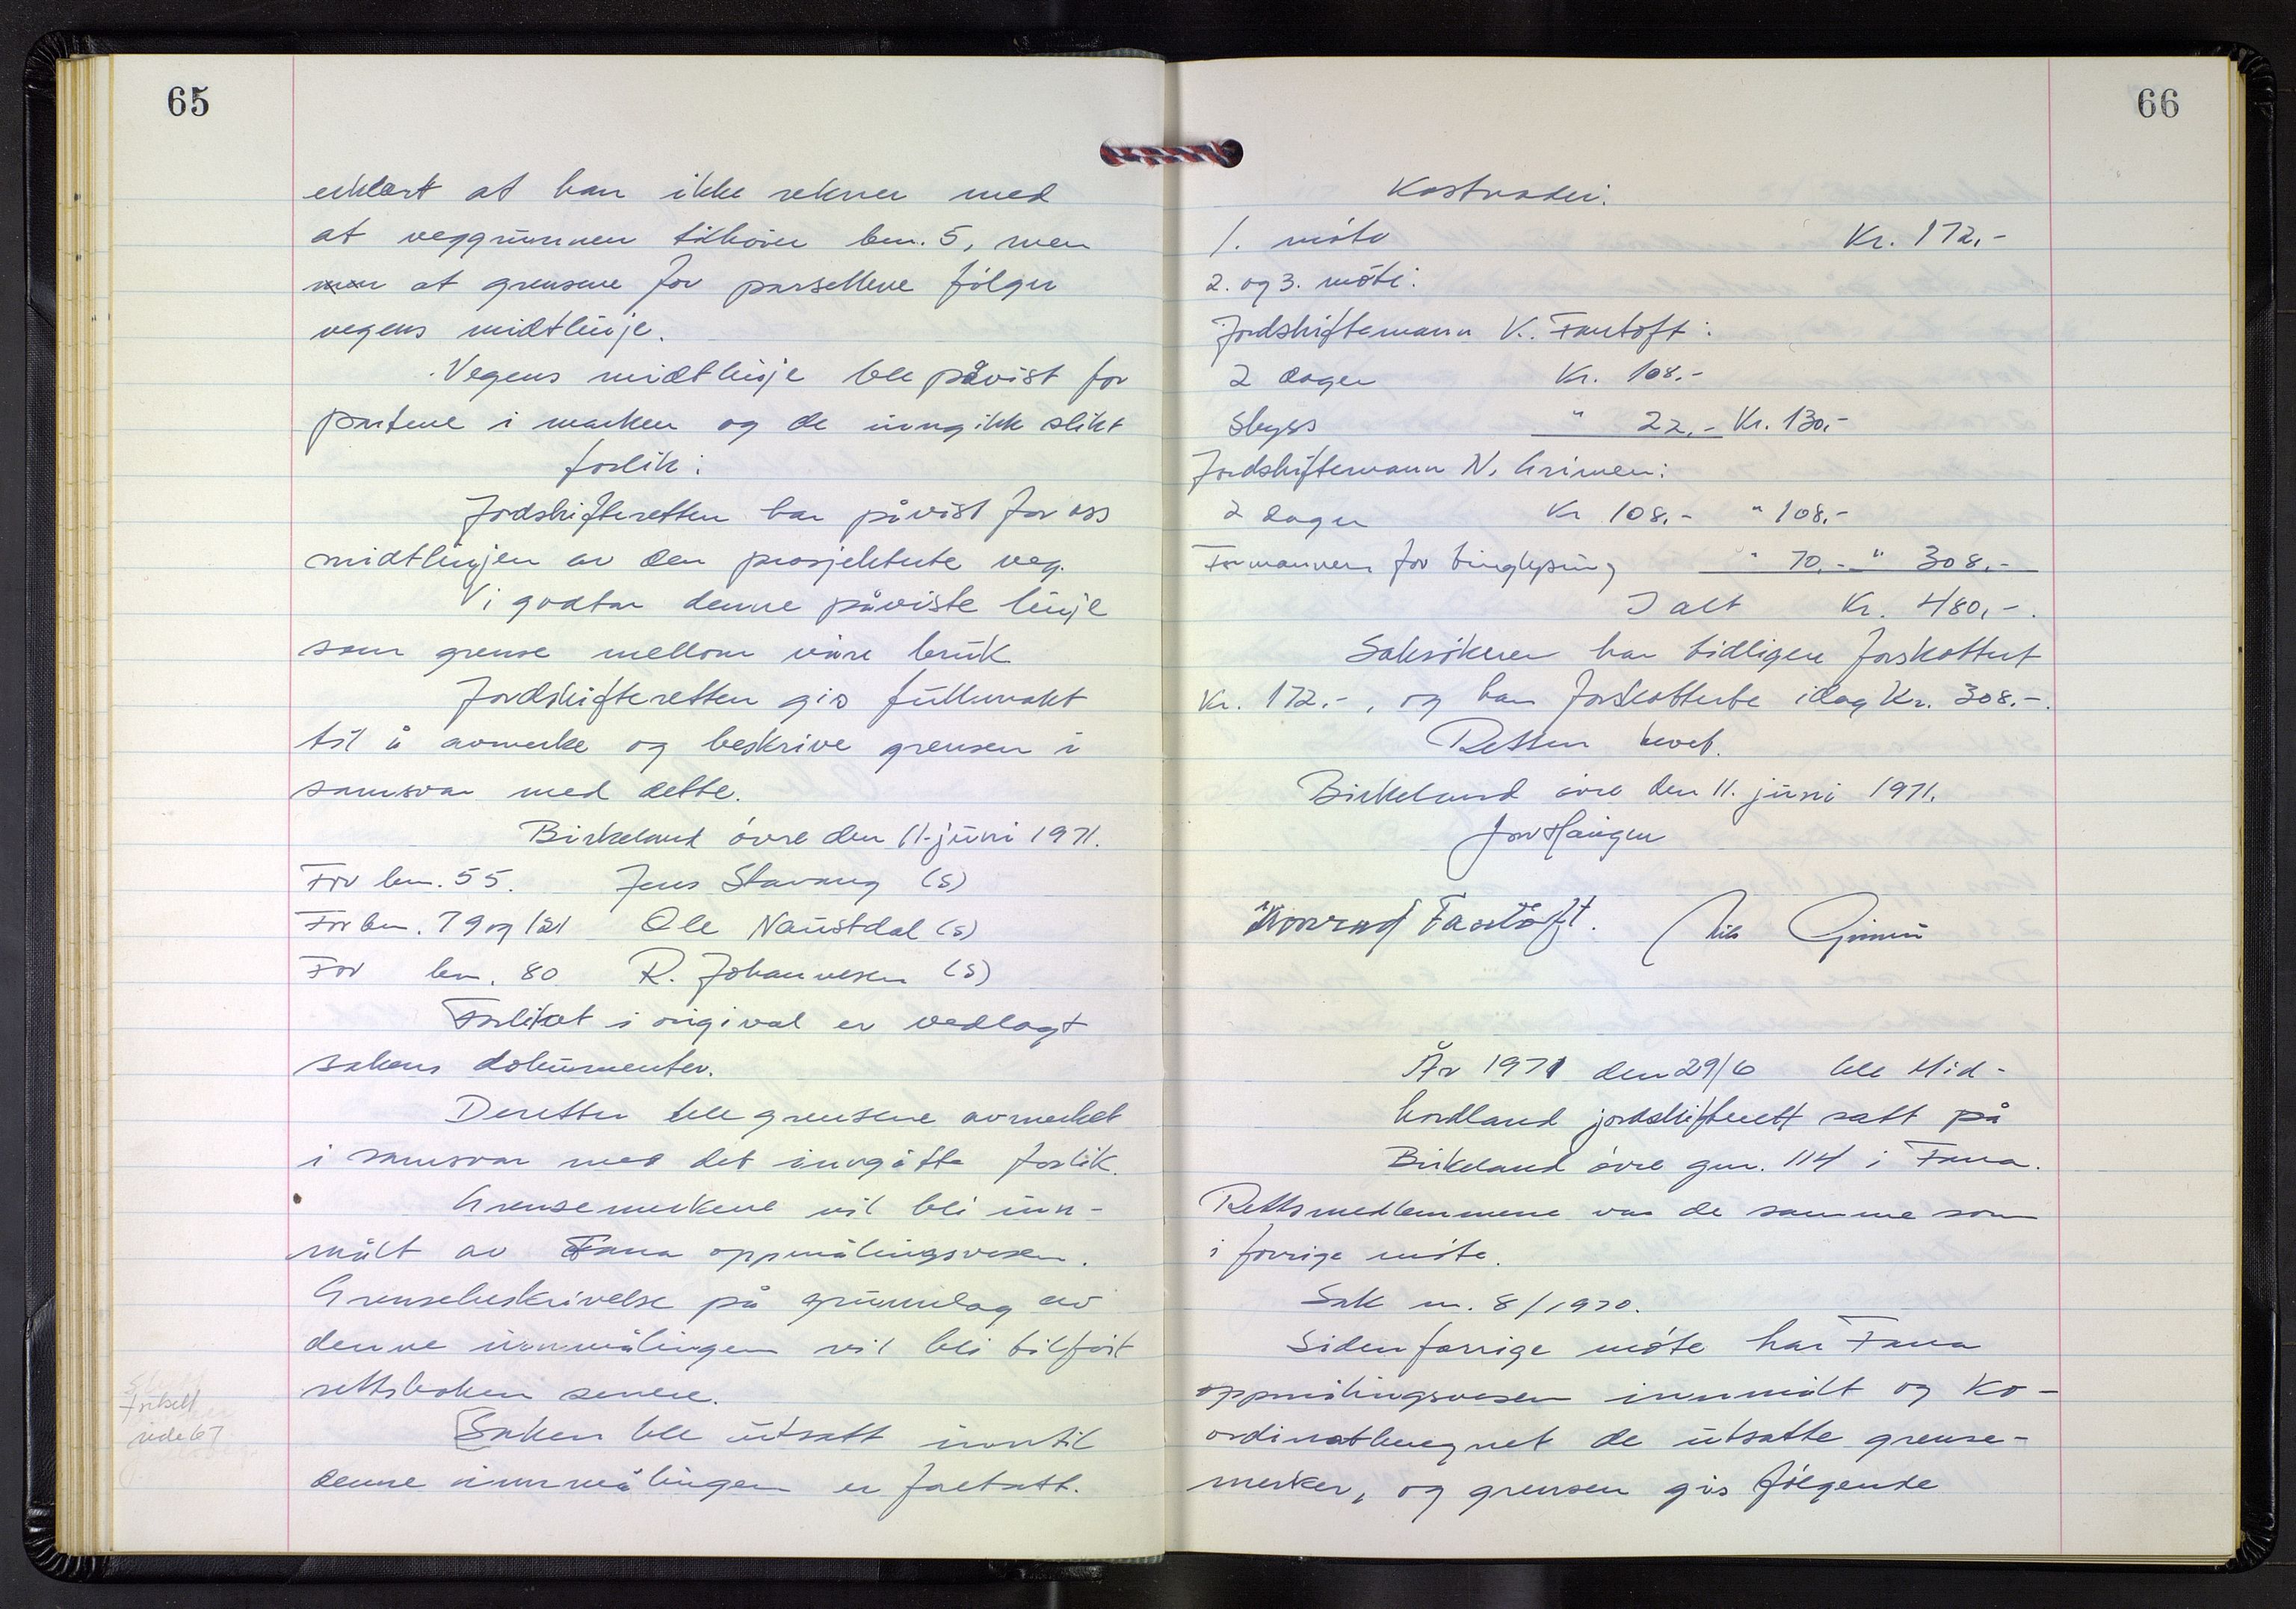 65
erklært at han ikke rekner med
at veggrunnen tilhører bnr. 5, men
men at grensene for parsellene følger
vegens midtlinje.
Vegens midtlinje ble påvist for
partene i marken og de inngikk slikt
forlik:
Jordskifteretten har påvist for oss
midtlinjen av den prosjekterte veg.
Vi godtar denne påviste linje
som grense mellom våre bruk
Jordskifteretten gis fullmakt
til å avmerke og beskrive grensen i
samsvar med dette.
Birkeland øvre den 11. juni 1971.
For bnr. 55. Jens Stavang (s)
For bnr. 79 og 121 Ole Naustdal (s)
For bnr. 80 R. Johannesen (s)
Forliket i original er vedlagt
sakens dokumenter.
Deretter ble grensene avmerket
i samsvar med det inngåtte forlik.
Grensemerkene vil bli inn-
målt av Fana oppmålingsvesen.
Grensebeskrivelse på grunnlag av
denne innmålingen vil bli tilført
rettsboken senere.
Saken ble utsatt inntil
denne innmålingen er foretatt.
side 67
66
Kostnader:
1. møte Kr. 172,-
2. og 3. møte:
Jordskiftemann K. Fantoft:
2 dager Kr. 108.-
Skyss " 22,- Kr. 130,-
Jordskiftemann N. Grimen:
2 dager Kr 108,- " 108,-
Formannen for tinglysing " 70,- " 308,-
I alt Kr. 480,-.
Saksøkeren har tidligere forskottert
Kr. 172.-, og han forskotterte idag Kr. 308.-.
Retten hevet.
Birkeland øvre den 11. juni 1971.
Jon Haugen
Konrad Fantoft. Nils Grimen
År 1971 den 29/6 ble Mid-
hordland jordskifterett satt på
Birkeland øvre gnr. 114 i Fana.
Rettsmedlemmene var de samme som
i forrige møte.
Sak nr. 8/1970.
Siden forrige møte har Fana
oppmålingsvesen innmålt og ko-
ordinatberegnet de utsatte grense-
merker, og grensen gis følgende